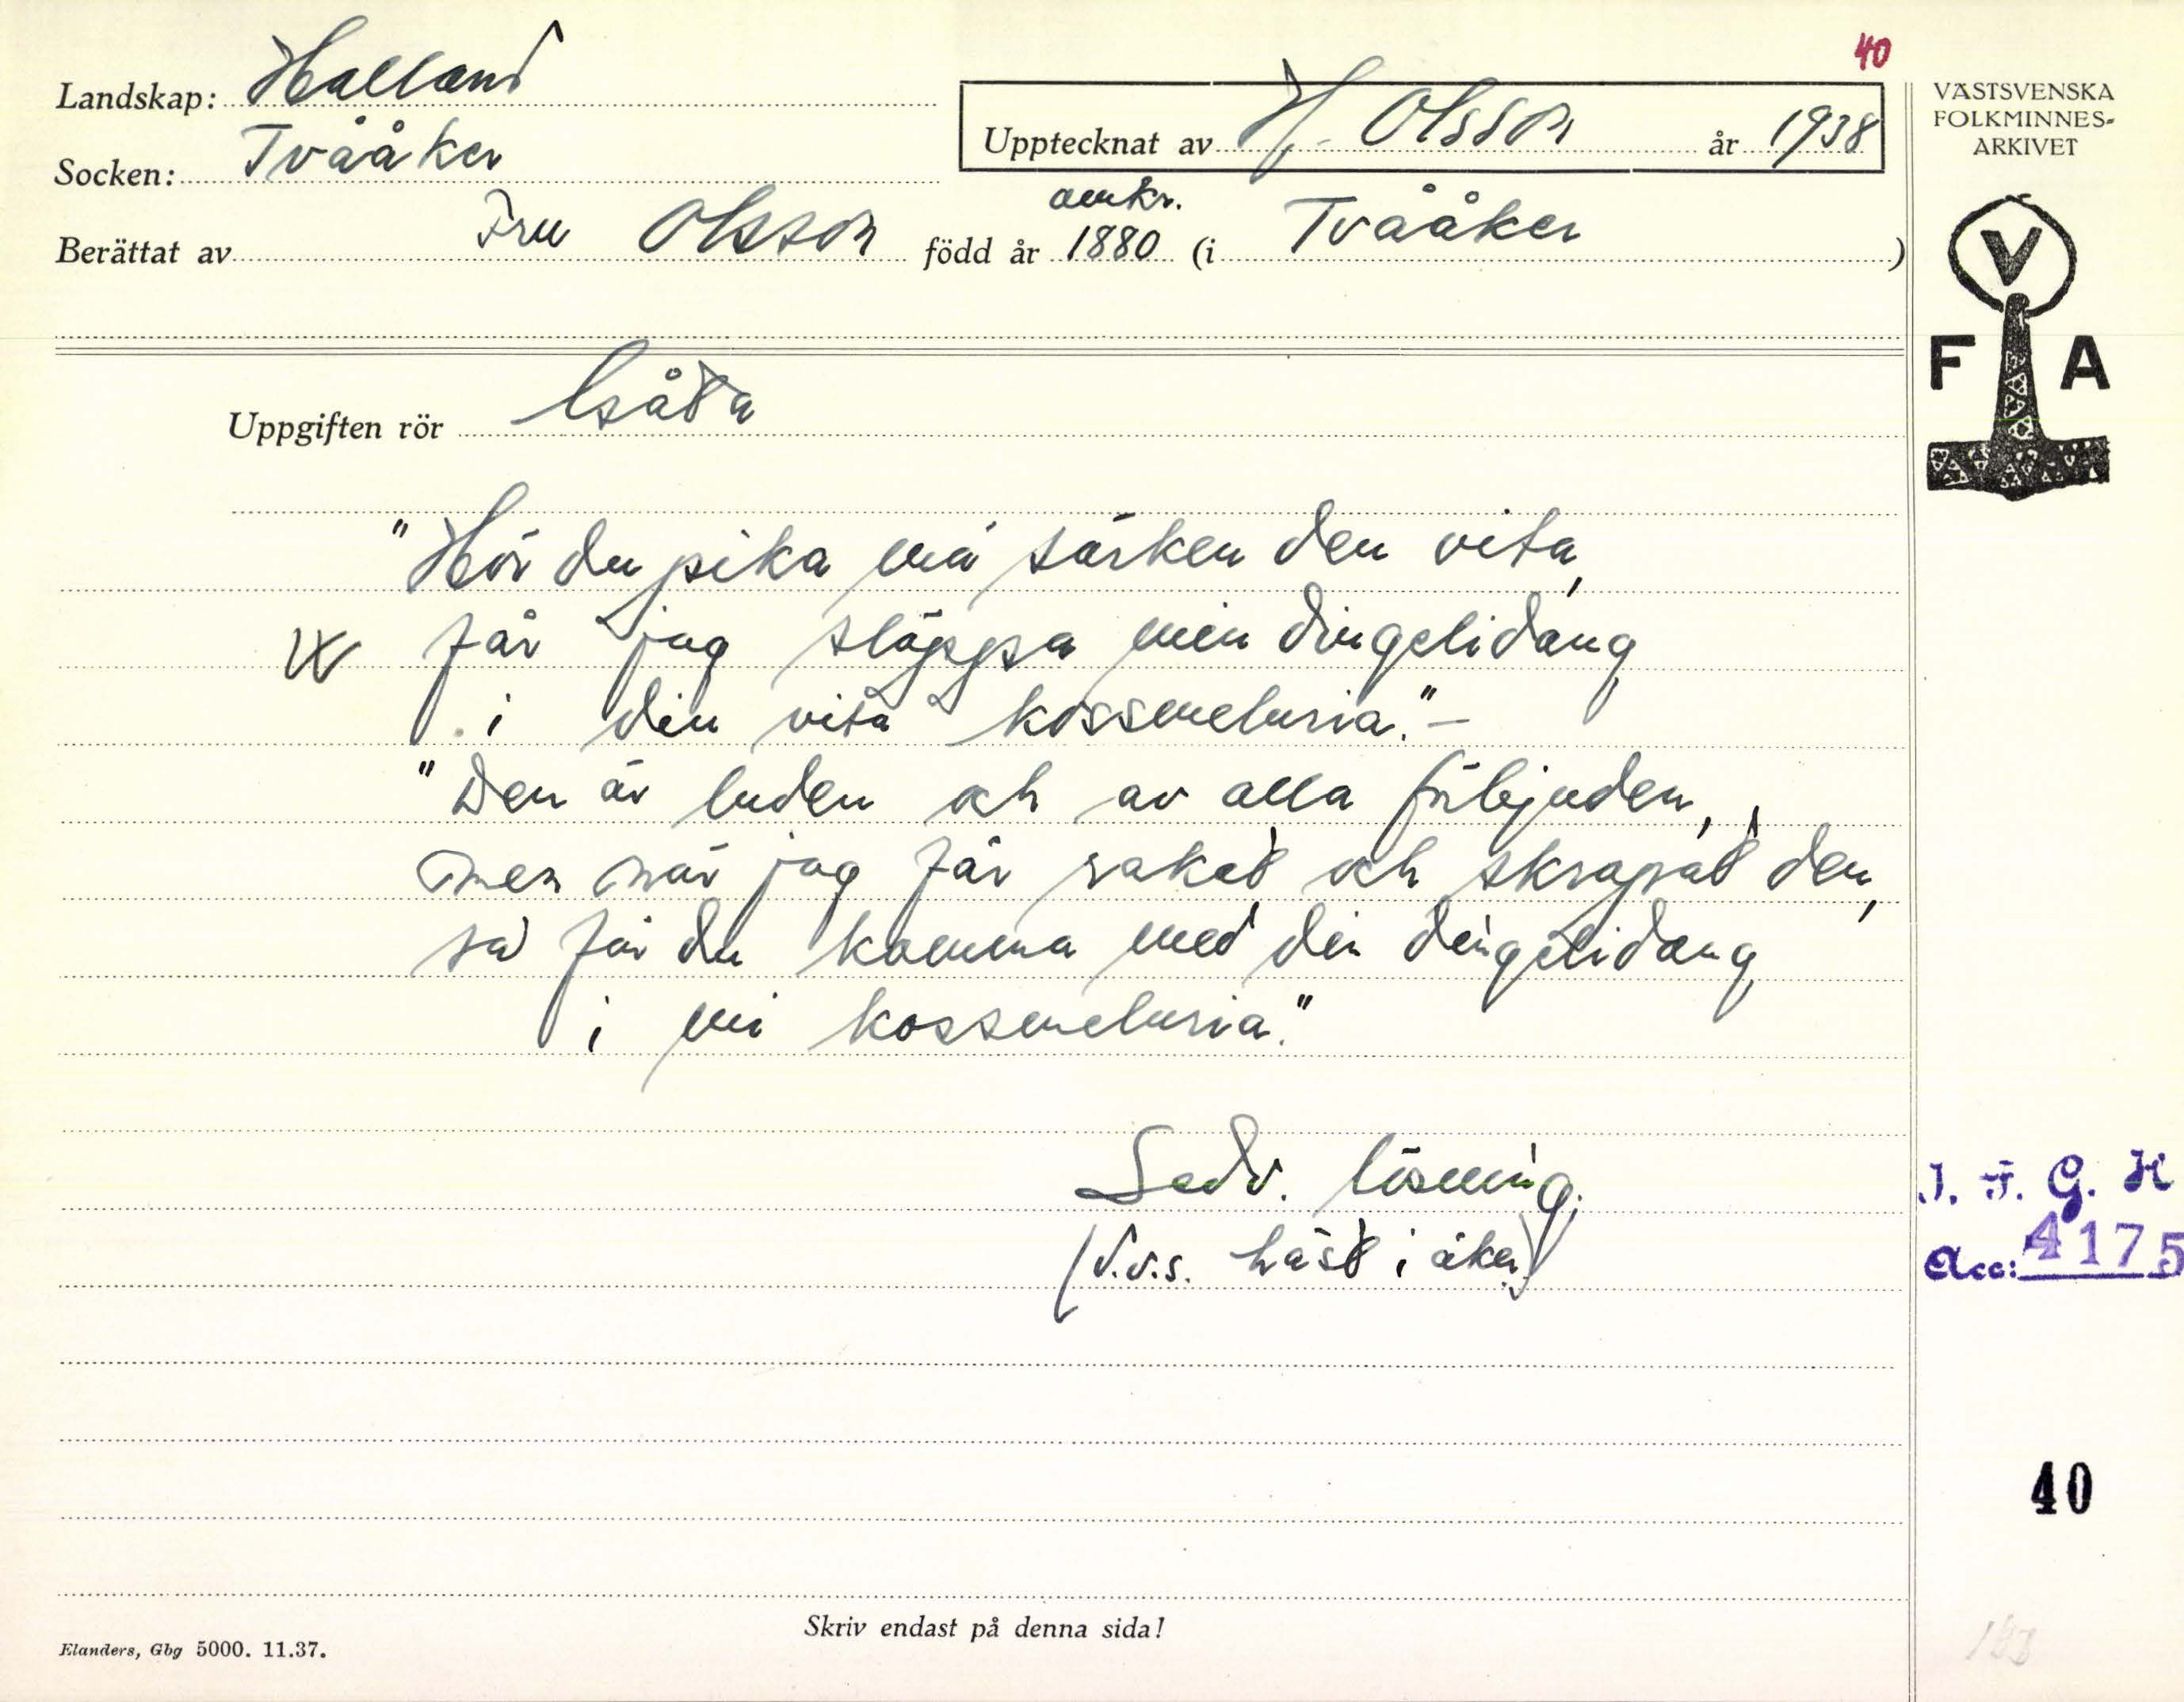 40
Landskap: Halland
Upptecknat av H. Olsson år 1938
VÄSTSVENSKA
FOLKMINNES-
ARKIVET
Socken: Tvååker
Berättat av Fru Olsson född år omkr. 1880 (i Tvååker)
V
F A
Uppgiften rör Gåta
"Hör du pika mä särken den vita,
får jag släppa min dingelidang
i din vita kossemeluria." –
"Den är luden och av alla förbjuden,
men när jag får rakat och skrapat den,
så får du komma med din dingelidang
i mi kossemeluria."
Sedv. lösning.
(d.v.s. häst i åker)
I. F. G. H
Acc: 4175
40
Skriv endast på denna sida!
Elanders, Gbg 5000. 11.37.